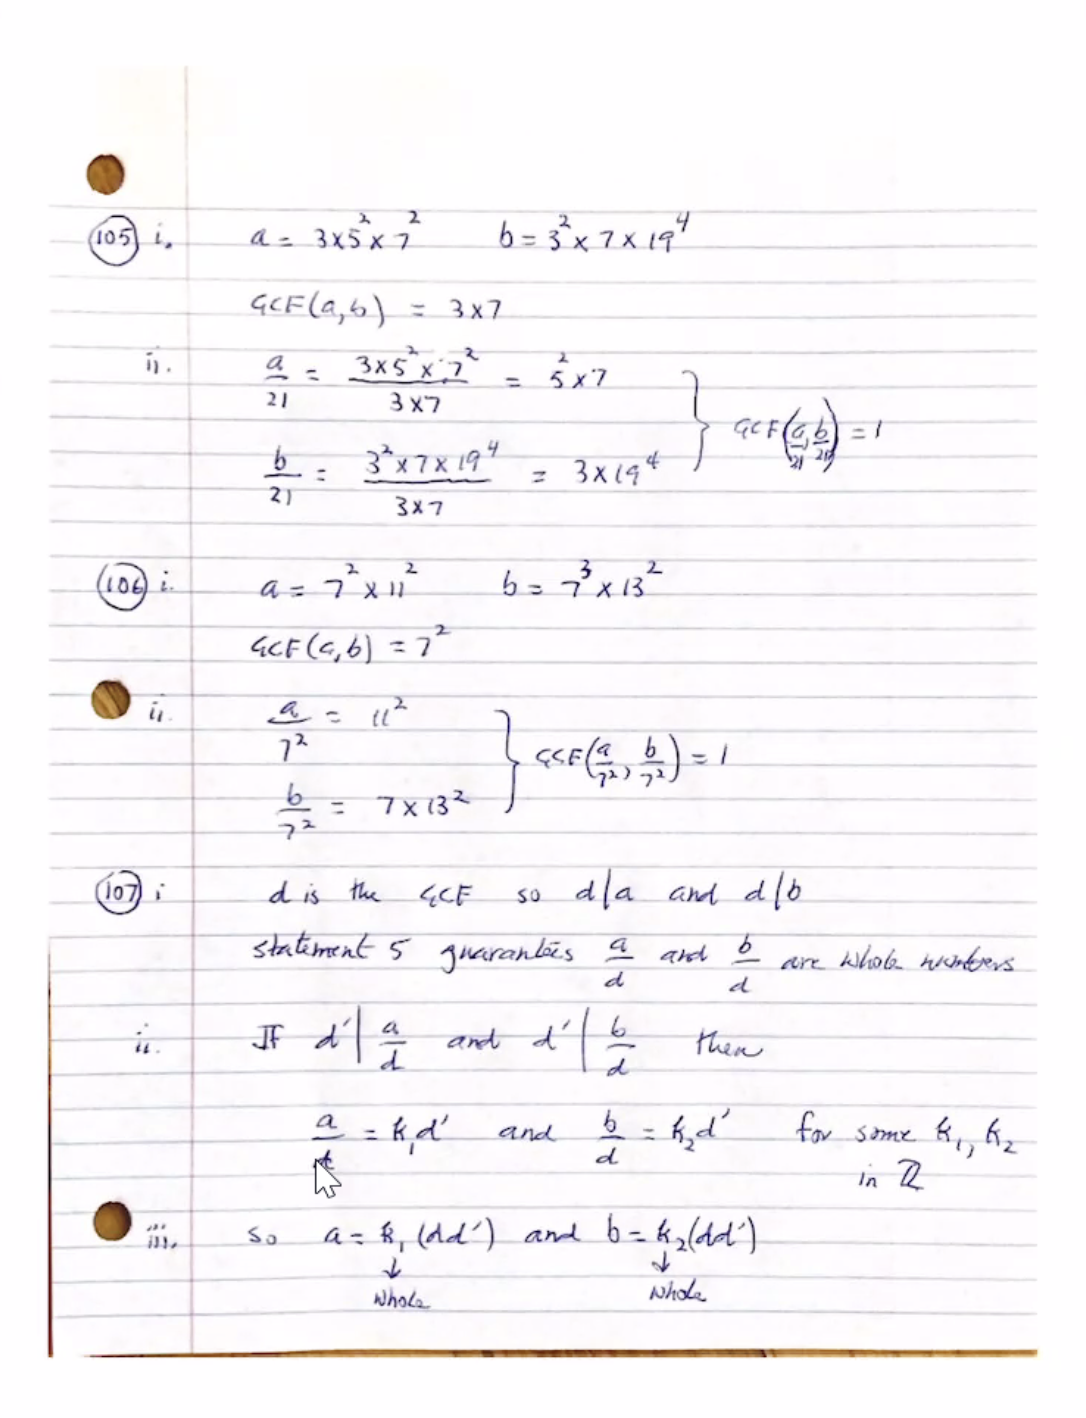 105 i. a = 3×5²×7² b = 3²×7×19⁴
GCF(a,b) = 3×7
ii. a/21 = (3×5²×7²)/(3×7) = 5²×7
b/21 = (3²×7×19⁴)/(3×7) = 3×19⁴ } GCF(a/21, b/21) = 1
106 i. a = 7²×11² b = 7³×13²
GCF(a,b) = 7²
ii. a/7² = 11²
b/7² = 7×13² } GCF(a/7², b/7²) = 1
107 i d is the GCF so d|a and d|b
statement 5 guarantees a/d and b/d are whole numbers
ii. If d′ | a/d and d′ | b/d then
a/d = k₁d′ and b/d = k₂d′ for some k₁, k₂
in ℤ
iii. so a = k₁(dd′) and b = k₂(dd′)
↓ ↓
whole whole